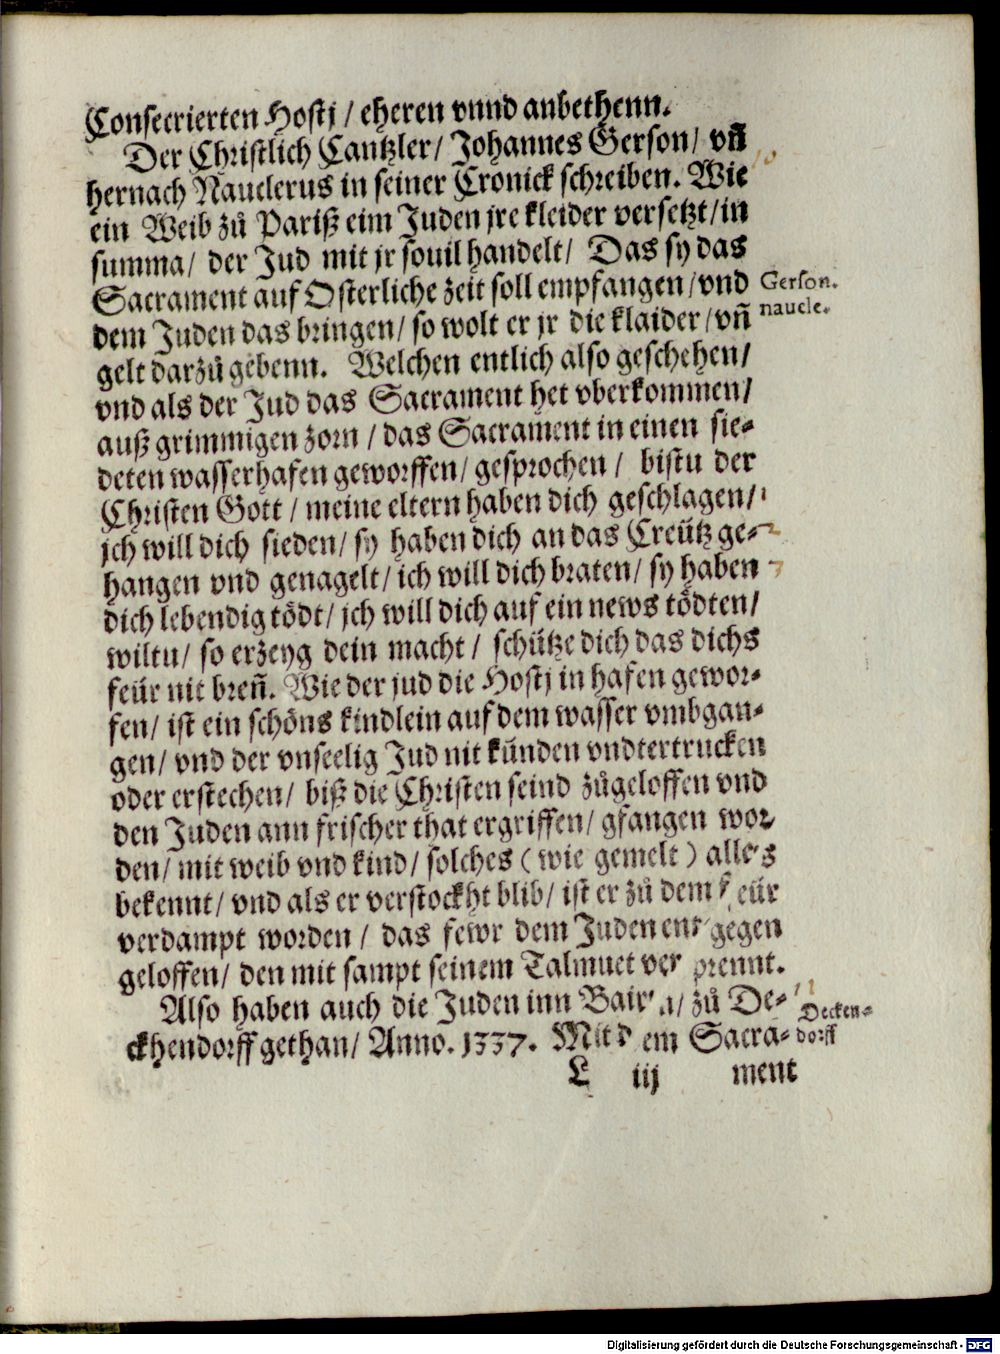 Consecrierten Hostj / eheren vnnd anbethenn.
Der Christlich Cantzler / Johannes Gerson / vñ
hernach Nauclerus in seiner Cronick schreiben. Wie
ein Weib zů Pariß eim Juden jre kleider versetzt / in
summa / der Jud mit jr souil handelt / Das sy das
Sacrament auf Osterliche zeit soll empfangen / vnd
Gerson.
dem Juden das bringen / so wolt er jr die klaider / vñ
naucle.
gelt darzů gebenn. Welchen entlich also geschehen /
vnd als der Jud das Sacrament het vberkommen /
auß grimmigen zorn / das Sacrament in einen sie-
deten wasserhafen geworffen / gesprochen / bistu der
Christen Gott / meine eltern haben dich geschlagen /
jch will dich sieden / sy haben dich an das Creütz ge-
hangen vnd genagelt / ich will dich braten / sy haben
dich lebendig tödt / jch will dich auf ein news tödten /
wiltu / so erzeyg dein macht / schütze dich das dichs
feür nit breñ. Wie der jud die Hostj in hafen gewor-
fen / ist ein schöns kindlein auf dem wasser vmbgan-
gen / vnd der vnseelig Jud nit künden vndtertrucken
oder erstechen / biß die Christen seind zůgeloffen vnd
den Juden ann frischer that ergriffen / gfangen wor
den / mit weib vnd kind / solches ( wie gemelt ) alles
bekennt / vnd als er verstockht blib / ist er zů dem feür
verdampt worden / das fewr dem Juden entgegen
geloffen / den mit sampt seinem Talmuet verprennt.
Also haben auch die Juden inn Bairn / zů De-
Decken-
ckhendorff gethan / Anno. 1337. Mit dem Sacra-
dorff
L iij ment
Digitalisierung gefördert durch die Deutsche Forschungsgemeinschaft - DFG